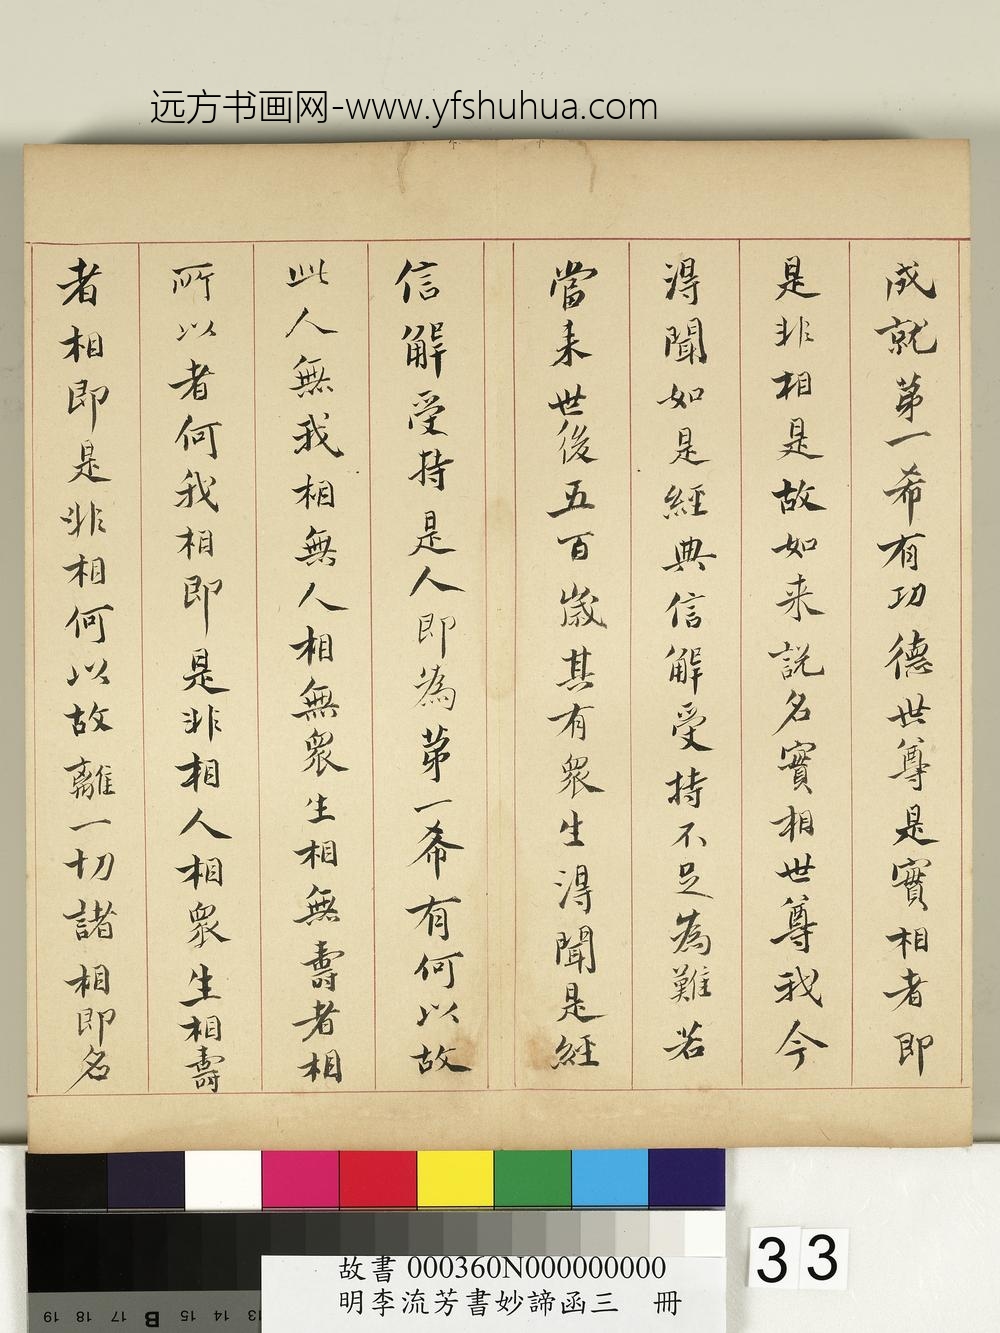 远方书画网-www.yfshuhua.com
成就第一希有功德世尊是實相者即
是非相是故如来説名實相世尊我今
淂聞如是經典信解受持不足為難若
當来世後五百歲其有衆生淂聞是經
信解受持是人即為第一希有何以故
此人無我相無人相無衆生相無壽者相
所以者何我相即是非相人相衆生相壽
者相即是非相何以故離一切諸相即名
33
故書 000360N000000000
明李流芳書妙諦函三 冊
19 18 17 B 15 14 13